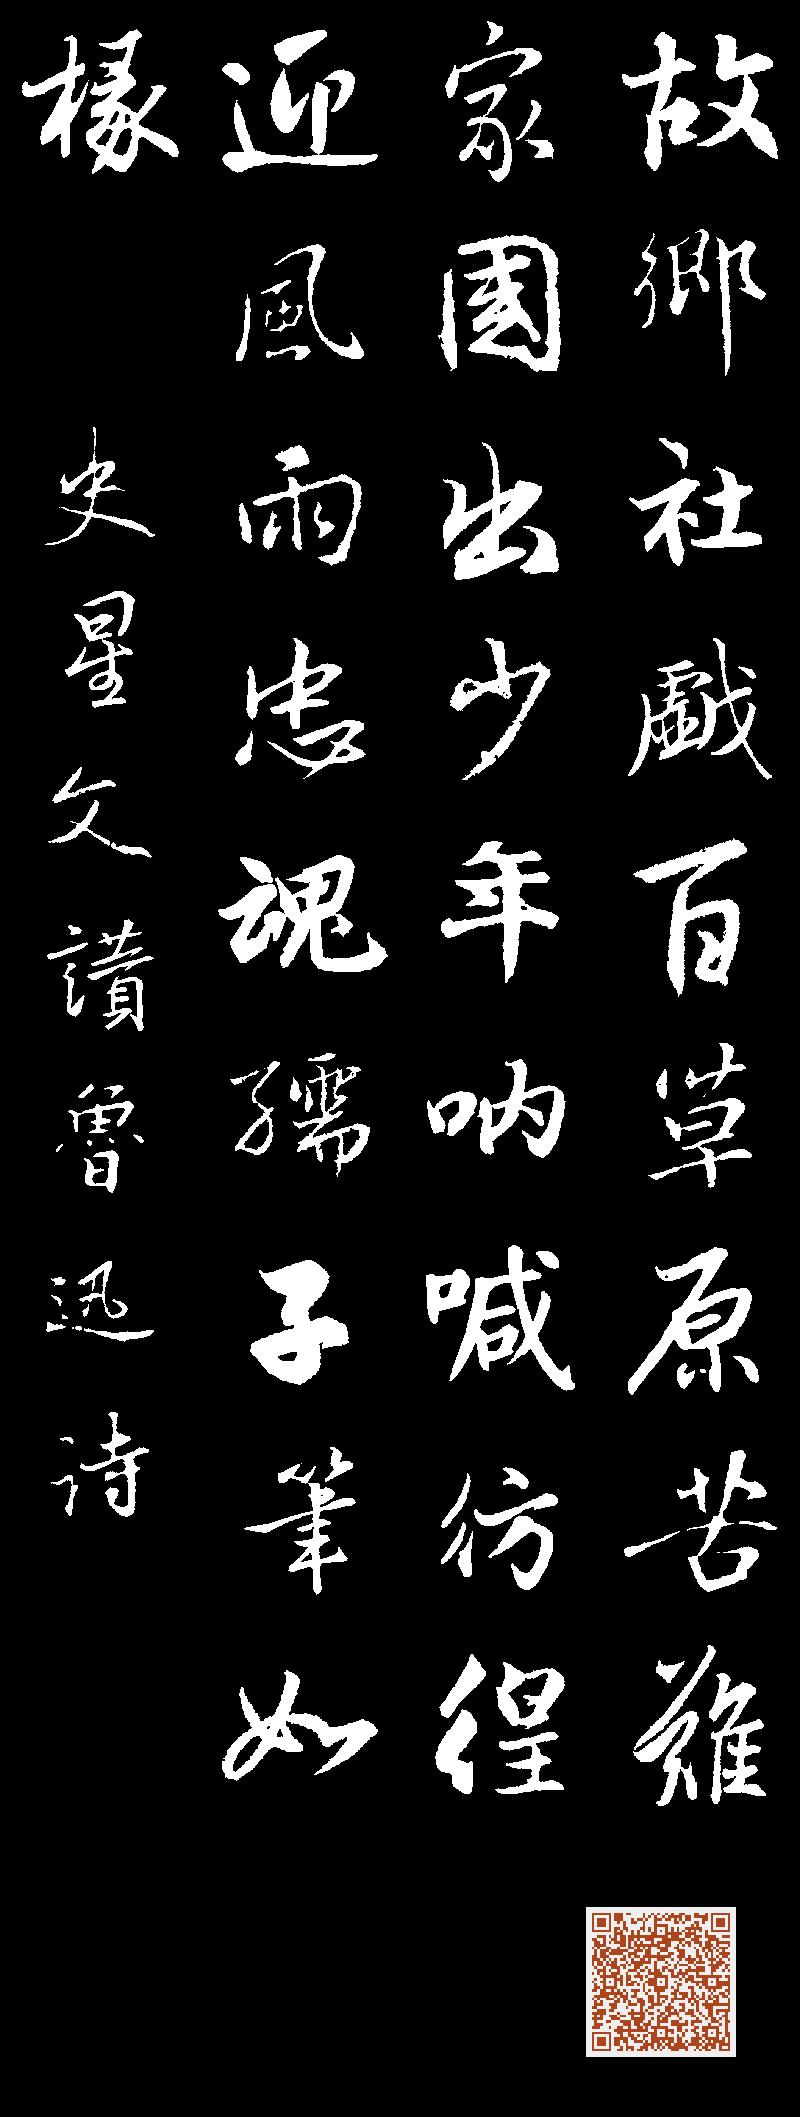 故鄉社戲百草原苦難
家國出少年吶喊彷徨
迎風雨忠魂孺子筆如
椽
史星文讚魯迅詩